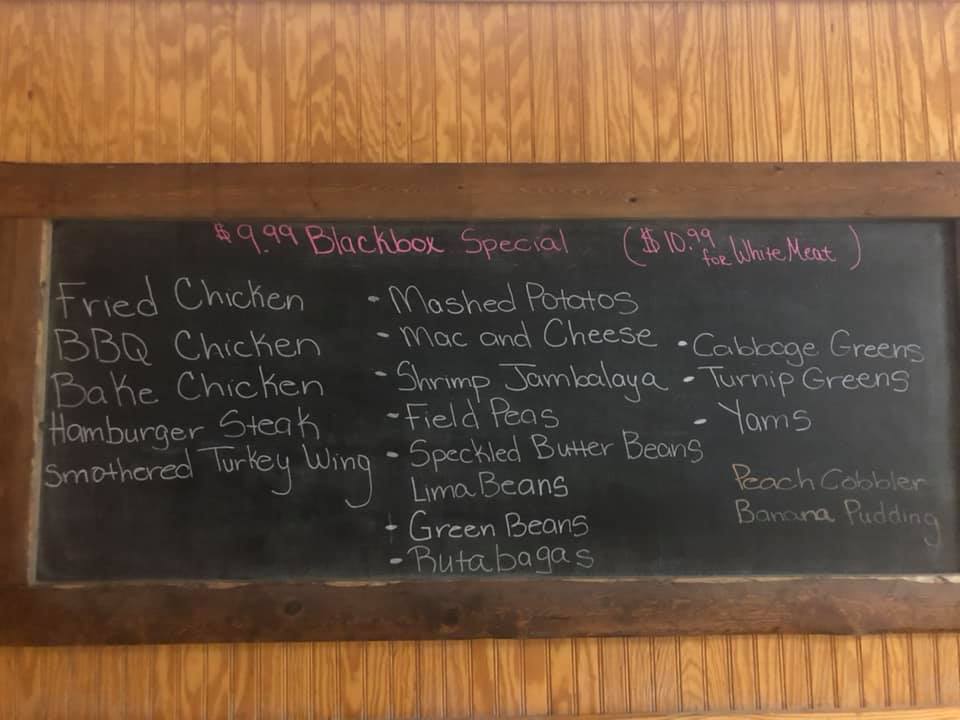 $9.99 Blackbox Special ($10.99 for White Meat)
Fried Chicken
BBQ Chicken
Bake Chicken
Hamburger Steak
Smothered Turkey Wing
- Mashed Potatos
- Mac and Cheese
- Shrimp Jambalaya
- Field Peas
- Speckled Butter Beans
Lima Beans
- Green Beans
- Rutabagas
- Cabbage Greens
- Turnip Greens
- Yams
Peach Cobbler
Banana Pudding